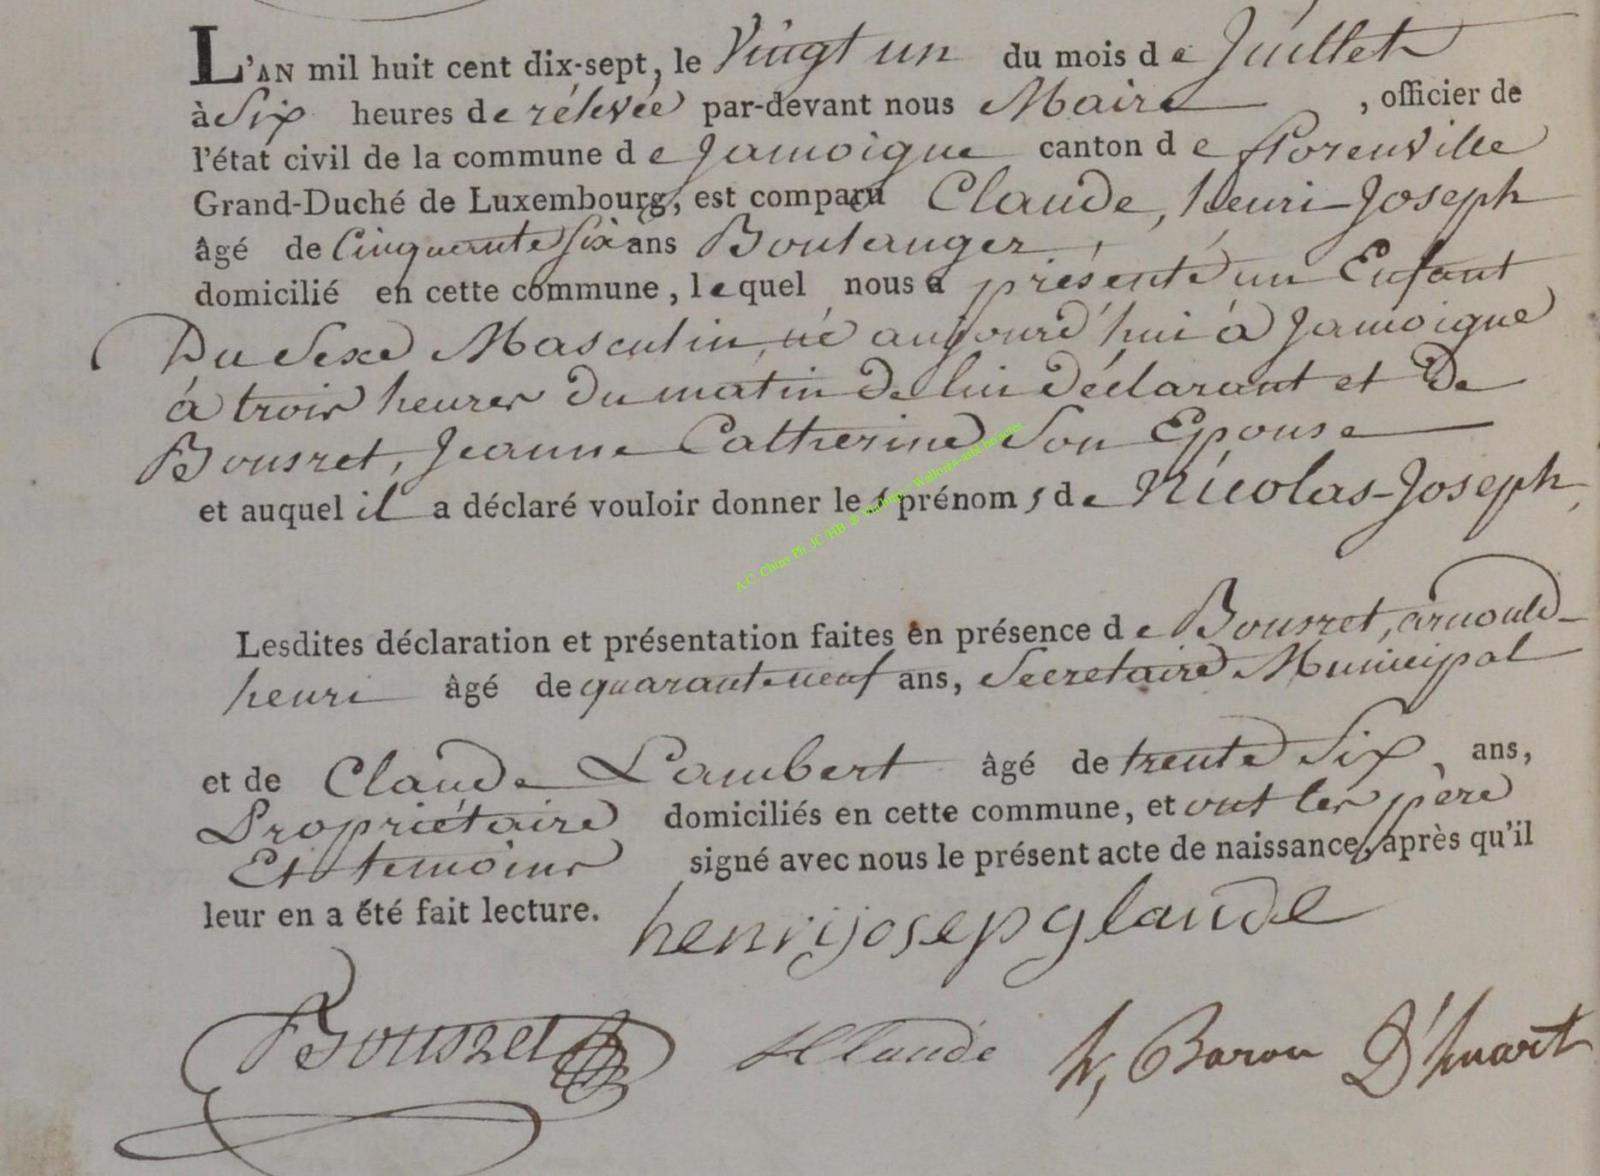 L'AN mil huit cent dix-sept, le Vingt un du mois de Juillet
à Six heures de rélevée par-devant nous Maire , officier de
l'état civil de la commune de Jamoigne canton de florenville
Grand-Duché de Luxembourg, est comparu Claude, henri-Joseph
âgé de Cinquante Six ans Boulanger,
domicilié en cette commune, lequel nous a présenté un Enfant
Du Sexe Masculin, né aujourd'hui à Jamoigne
à trois heures du matin de lui déclarant et De
Bousret, Jeanne Catherine Son Epouse
et auquel il a déclaré vouloir donner les prénoms de Nicolas-Joseph,
A.C. Chiny Ph. JC HB
Lesdites déclaration et présentation faites en présence de Bousret, arnould-
henri âgé de quarante neuf ans, Secretaire Municipal
et de Claude Lambert âgé de trente Six ans,
Propriétaire domiciliés en cette commune, et ont les père
Et temoins signé avec nous le présent acte de naissance, après qu'il
leur en a été fait lecture.
henrijosepglaude
Bousret Claude h, Baron D'huart